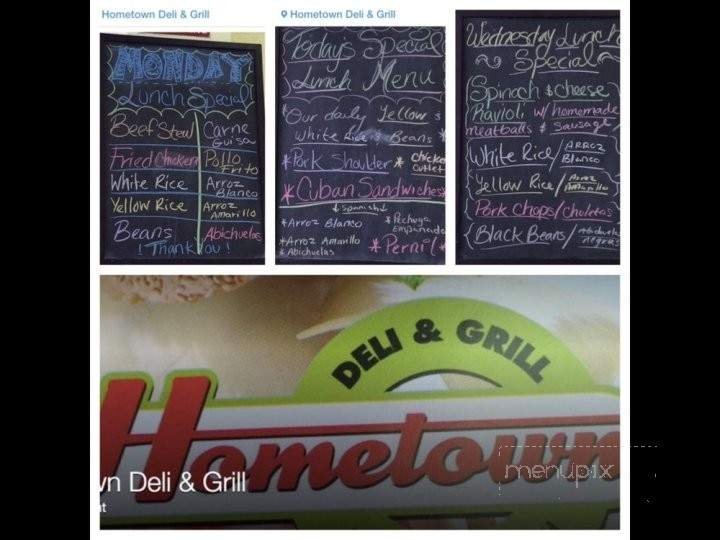 Hometown Deli & Grill
MONDAY
Lunch Special
Beef Stew
Carne Guisa
Fried Chicken
Pollo Frito
White Rice
Arroz Blanco
Yellow Rice
Arroz Amarillo
Beans
Abichuelas
! Thank You !
Hometown Deli & Grill
Today's Special
Lunch Menu
*Our daily Yellow &
White Rice & Beans
*Pork Shoulder * Chicken Cutlet
*Cuban Sandwiches
↓ Spanish ↓
*Arroz Blanco
*Pechuga Empanizada
*Arroz Amarillo
*Abichuelas
*Pernil
Wednesday Lunch
Special
Spinach & cheese
Ravioli w/ homemade
meatballs & Sausage
White Rice/ Arroz Blanco
Yellow Rice/ Arroz Amarillo
Pork Chops/Chuletas
Black Beans/ Abichuelas negras
DELI & GRILL
Hometown
wn Deli & Grill
nt
menupix